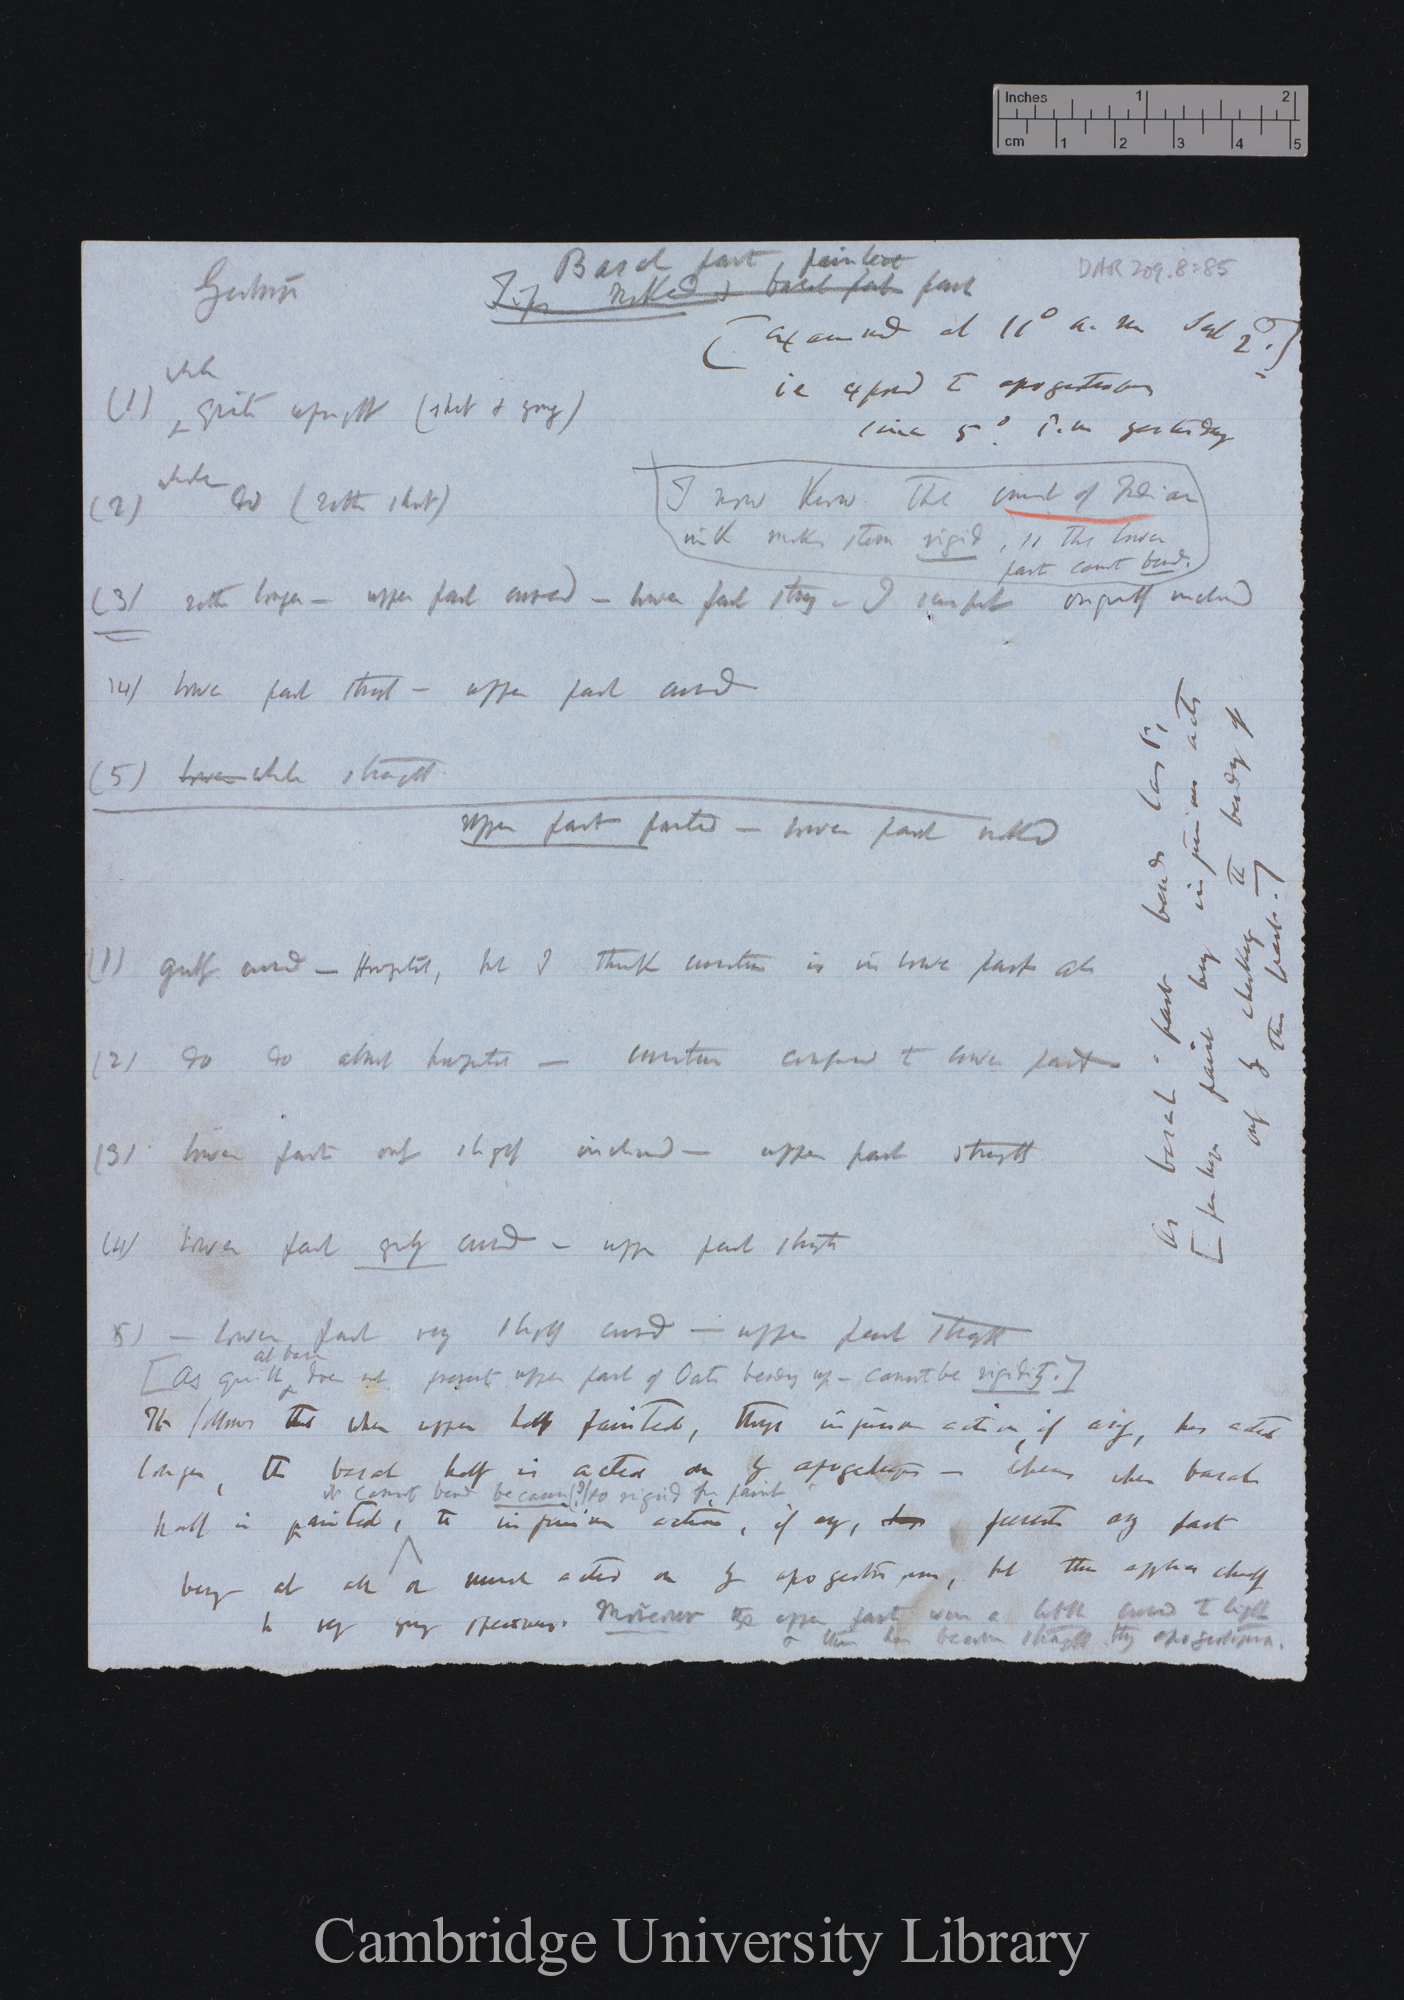 Inches 1 2
cm 1 2 3 4 5
DAR 209.8:85
Basal part painted
Tip naked & basal part part
[examined at 11° a.m Sept 2°.]
ie exposed to apogeotropism
since 5°. P.m yesterday
(1) whole quite upright (short & young)
(2) whole do (rather short)
I now know the coat of Indian
ink makes stem rigid, so the lower
part cannot bend.
(3) rather longer — upper part curved — lower part
(4) lower part straight — upper part curved
(5) lower whole straight
upper part painted — lower part naked
(1) greatly curved — Horizontal, but I think curvature is in lower part
(2) do do almost horizontal — curvature confined to lower part
(3) lower part only slightly inclined — upper part straight
(4) lower part greatly curved — upper part straight
5) — lower part very slightly curved — upper part straight
at base
[As quill does not prevent upper part of Oats bending up — cannot be rigidity.]
It follows that when upper half painted, though injurious action, if any, has acted
longer, the basal half is acted on by apogeotropism — whereas when basal
it cannot bend because (?) so rigid from paint
half is painted, the injurious action, if any, has prevents any part
being at all or much acted on by apogeotropism, but this applies chiefly
to very young specimens. Moreover the upper part were a little curved to light
& then has become straight by apogeotropism.
As basal part bends last,
paint being injurious acts
only by checking the bending of
this part.]
Cambridge University Library